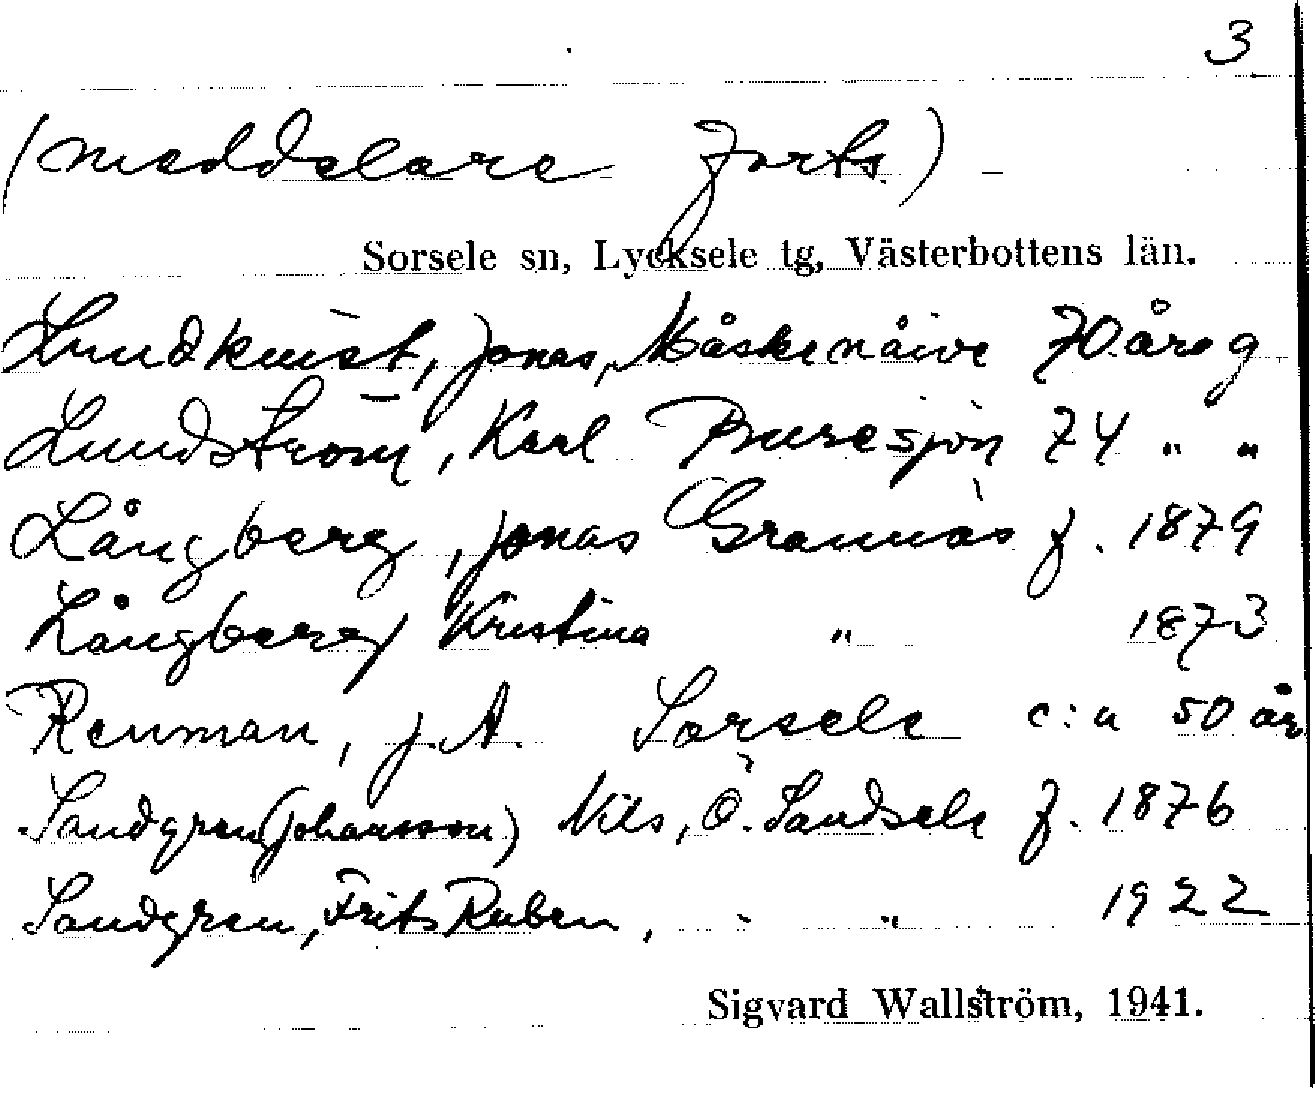 3
(meddelare forts.)
Sorsele sn, Lycksele tg, Västerbottens län.
Lundkvist, Jonas, Måskenåive 70 år g
Lundström, Karl Buresjön 74 " "
Långberg, Jonas Grannäs f. 1879
Långberg Kristina " 1873
Renman, J. A. Sorsele c:a 50 år
Sandgren (Johansson) Nils, Ö. Sandsele f. 1876
Sandgren, Frits Ruben, - " 1922
Sigvard Wallström, 1941.